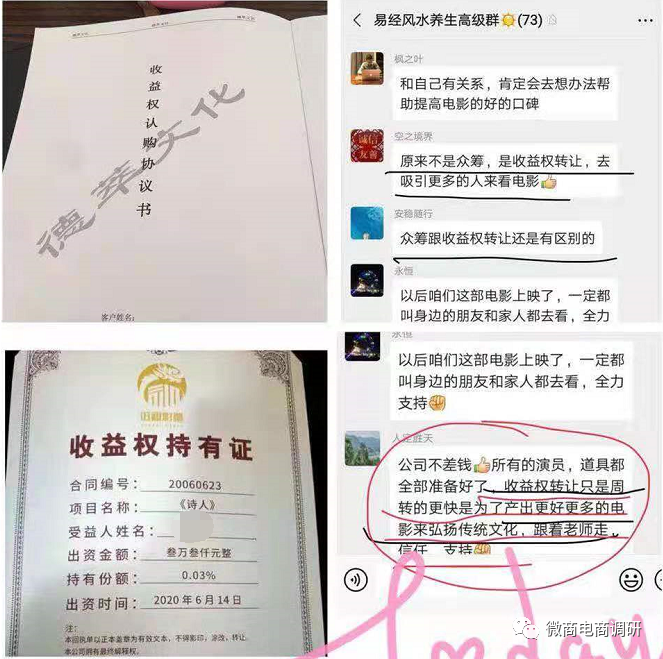 德萃文化
德萃文化
收益权认购协议书
客户姓名:
易经风水养生高级群🌞(73)
枫之叶
和自己有关系,肯定会去想办法帮
助提高电影的好的口碑
诚信
友善
空之境界
原来不是众筹,是收益权转让,去
吸引更多的人来看电影👍
安稳随行
众筹跟收益权转让还是有区别的
永恒
以后咱们这部电影上映了,一定都
叫身边的朋友和家人都去看,全力
收益权持有证
合同编号: 20060623
项目名称: 《诗人》
受益人姓名:
出资金额: 叁万叁仟元整
持有份额: 0.03%
出资时间: 2020年6月14日
注:
本回执单以正本盖章为有效文本,不得影印,涂改,转让.
本公司拥有最终解释权.
永恒
以后咱们这部电影上映了,一定都
叫身边的朋友和家人都去看,全力
支持✊
人定胜天
公司不差钱👍所有的演员,道具都
全部准备好了,收益权转让只是周
转的更快是为了产出更好更多的电
影来弘扬传统文化,跟着老师走,
信任,支持✊
微商电商调研